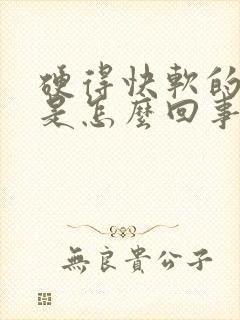 硬得快軟的
是怎麼回事
無良貴公子